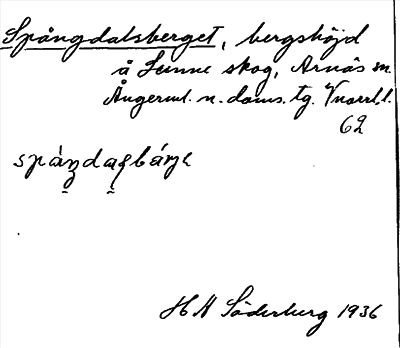 Spångdalsberget, bergshöjd
å Sunne skog, Arnäs sn.
Ångerml. n. doms. tg. Vnorrl. l.
62
H N Söderberg 1936